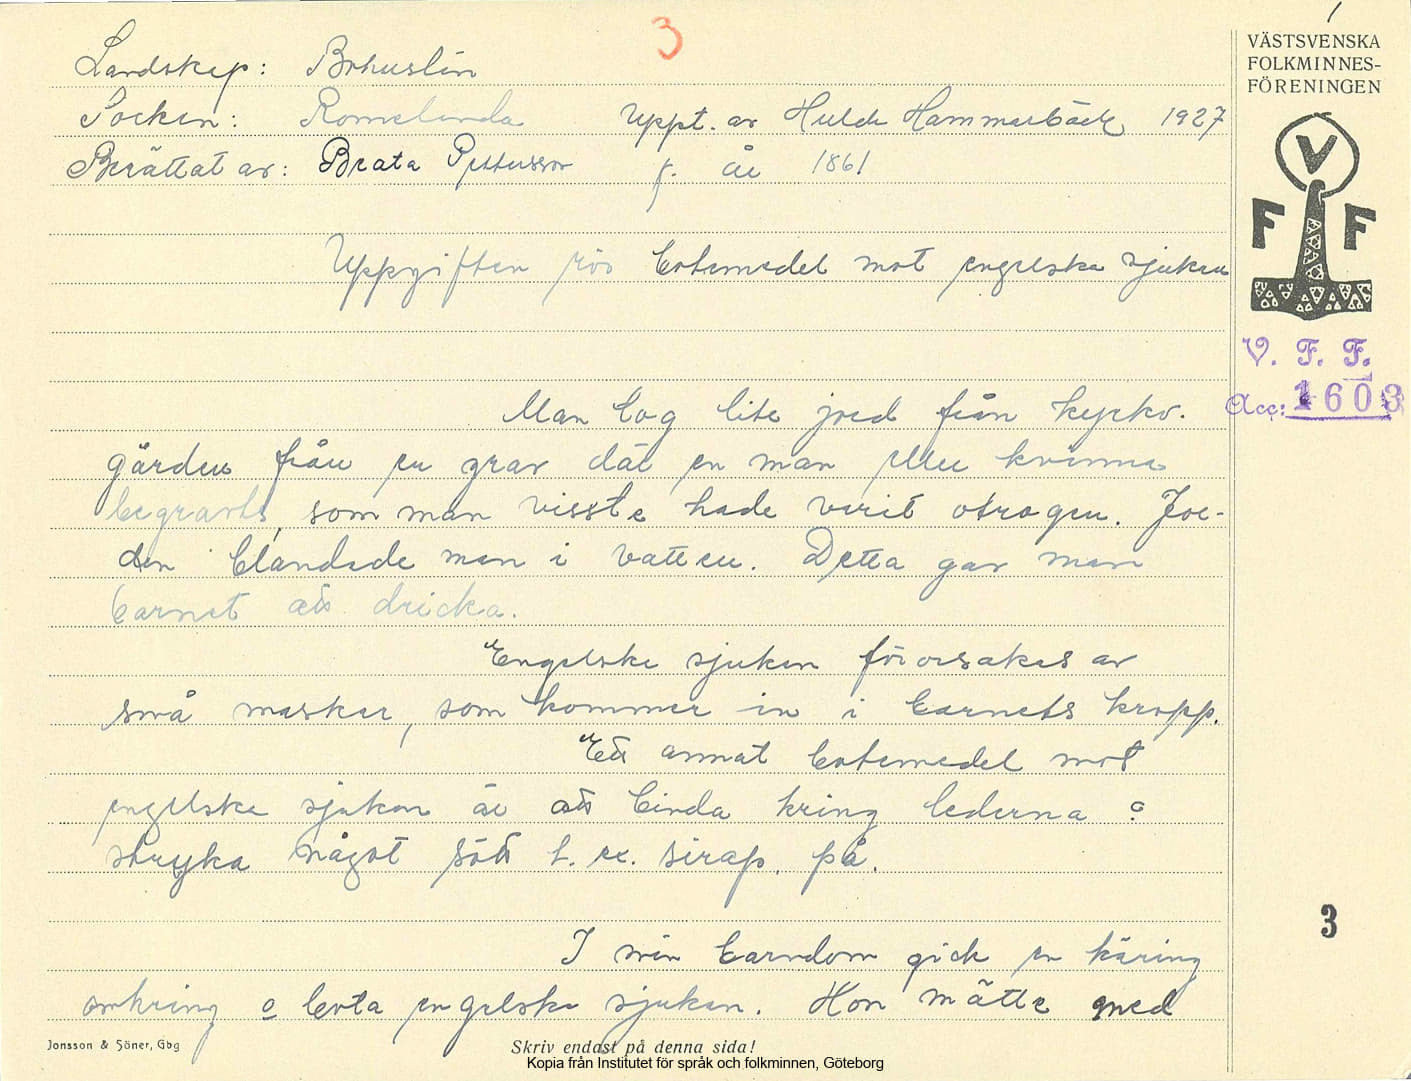 3
1
VÄSTSVENSKA
FOLKMINNES-
FÖRENINGEN
Landskap: Bohuslän
Socken: Romelanda Uppt. av Hulda Hammarbäck 1927
Berättat av: Beata Pettersson f. år 1861
V
F F
Uppgiften rör botemedel mot engelska sjukan
V. F. F.
Acc: 1603
Man tog lite jord från kyrko-
gården från en grav där en man eller kvinna
begravts, som man visste hade varit otrogen. Jor-
den blandade man i vatten. Detta gav man
barnet att dricka.
Engelska sjukan förorsakas av
små maskar, som kommer in i barnets kropp.
Ett annat botemedel mot
engelska sjukan är att binda kring lederna o
stryka något sött t. ex. sirap, på.
3
I min barndom gick en käring
omkring o bota engelska sjukan. Hon mätte med
Jonsson & Söner, Gbg
Skriv endast på denna sida!
Kopia från Institutet för språk och folkminnen, Göteborg